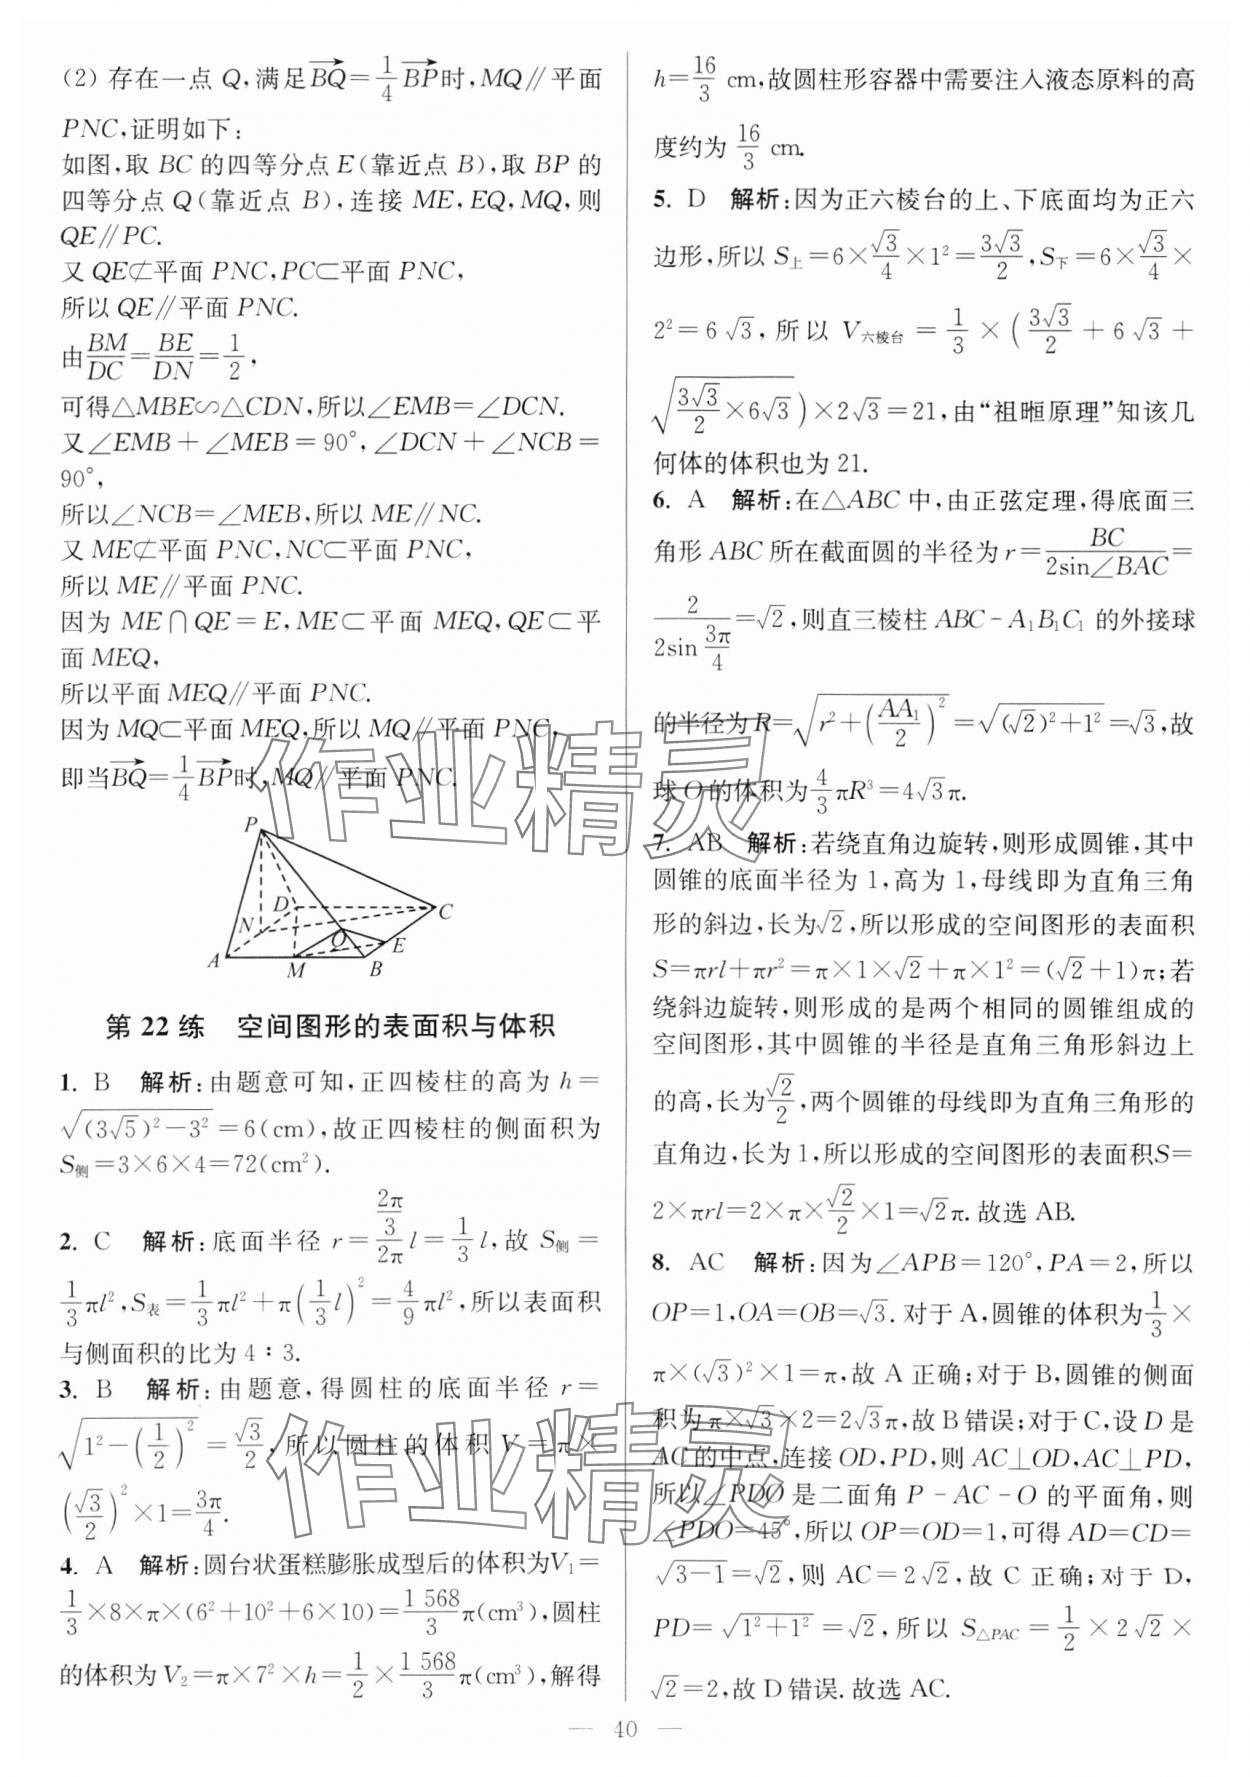 (2) 存在一点 Q,满足$\overrightarrow{BQ}=\frac{1}{4}\overrightarrow{BP}$时,MQ∥平面
PNC,证明如下:
如图,取 BC 的四等分点 E(靠近点 B),取 BP 的
四等分点 Q(靠近点 B),连接 ME,EQ,MQ,则
QE∥PC.
又 QE⊄平面 PNC,PC⊂平面 PNC,
所以 QE∥平面 PNC.
由$\frac{BM}{DC}=\frac{BE}{DN}=\frac{1}{2}$,
可得△MBE∽△CDN,所以∠EMB=∠DCN.
又∠EMB+∠MEB=90°,∠DCN+∠NCB=
90°,
所以∠NCB=∠MEB,所以 ME∥NC.
又 ME⊄平面 PNC,NC⊂平面 PNC,
所以 ME∥平面 PNC.
因为 ME∩QE=E,ME⊂平面 MEQ,QE⊂平
面 MEQ,
所以平面 MEQ∥平面 PNC.
因为 MQ⊂平面 MEQ,所以 MQ∥平面 PNC,
即当$\overrightarrow{BQ}=\frac{1}{4}\overrightarrow{BP}$时,MQ∥平面 PNC.
P
D
C
N
Q
E
A
M
B
第 22 练 空间图形的表面积与体积
1. B 解析:由题意可知,正四棱柱的高为 h=
$\sqrt{(3\sqrt{5})^2-3^2}$=6(cm),故正四棱柱的侧面积为
$S_{侧}$=3×6×4=72(cm²).
2. C 解析:底面半径 r=$\frac{\frac{2π}{3}}{2π}l=\frac{1}{3}l$,故 $S_{侧}$=
$\frac{1}{3}πl^2$,$S_{表}=\frac{1}{3}πl^2+π\left(\frac{1}{3}l\right)^2=\frac{4}{9}πl^2$,所以表面积
与侧面积的比为 4∶3.
3. B 解析:由题意,得圆柱的底面半径 r=
$\sqrt{1^2-\left(\frac{1}{2}\right)^2}=\frac{\sqrt{3}}{2}$,所以圆柱的体积 V=π×
$\left(\frac{\sqrt{3}}{2}\right)^2×1=\frac{3π}{4}$.
4. A 解析:圆台状蛋糕膨胀成型后的体积为$V_1$=
$\frac{1}{3}×8×π×(6^2+10^2+6×10)=\frac{1\ 568}{3}π$(cm³),圆柱
的体积为 $V_2=π×7^2×h=\frac{1}{2}×\frac{1\ 568}{3}π$(cm³),解得
h=$\frac{16}{3}$ cm,故圆柱形容器中需要注入液态原料的高
度约为 $\frac{16}{3}$ cm.
5. D 解析:因为正六棱台的上、下底面均为正六
边形,所以 $S_{上}=6×\frac{\sqrt{3}}{4}×1^2=\frac{3\sqrt{3}}{2}$,$S_{下}=6×\frac{\sqrt{3}}{4}×$
$2^2=6\sqrt{3}$,所以 $V_{六棱台}=\frac{1}{3}×(\frac{3\sqrt{3}}{2}+6\sqrt{3}+$
$\sqrt{\frac{3\sqrt{3}}{2}×6\sqrt{3}})×2\sqrt{3}=21$,由“祖暅原理”知该几
何体的体积也为 21.
6. A 解析:在△ABC 中,由正弦定理,得底面三
角形 ABC 所在截面圆的半径为 r=$\frac{BC}{2\sin∠BAC}$=
$\frac{2}{2\sin\frac{3π}{4}}=\sqrt{2}$,则直三棱柱 ABC-$A_1B_1C_1$ 的外接球
的半径为 R=$\sqrt{r^2+\left(\frac{AA_1}{2}\right)^2}=\sqrt{(\sqrt{2})^2+1^2}=\sqrt{3}$,故
球 O 的体积为$\frac{4}{3}πR^3=4\sqrt{3}π$.
7. AB 解析:若绕直角边旋转,则形成圆锥,其中
圆锥的底面半径为 1,高为 1,母线即为直角三角
形的斜边,长为$\sqrt{2}$,所以形成的空间图形的表面积
$S=πrl+πr^2=π×1×\sqrt{2}+π×1^2=(\sqrt{2}+1)π$;若
绕斜边旋转,则形成的是两个相同的圆锥组成的
空间图形,其中圆锥的半径是直角三角形斜边上
的高,长为$\frac{\sqrt{2}}{2}$,两个圆锥的母线即为直角三角形的
直角边,长为 1,所以形成的空间图形的表面积S=
$2×πrl=2×π×\frac{\sqrt{2}}{2}×1=\sqrt{2}π$.故选 AB.
8. AC 解析:因为∠APB=120°,PA=2,所以
OP=1,OA=OB=$\sqrt{3}$.对于 A,圆锥的体积为$\frac{1}{3}×$
$π×(\sqrt{3})^2×1=π$,故 A 正确;对于 B,圆锥的侧面
积为 $π×\sqrt{3}×2=2\sqrt{3}π$,故 B 错误;对于 C,设 D 是
AC 的中点,连接 OD,PD,则 AC⊥OD,AC⊥PD,
所以∠PDO 是二面角 P-AC-O 的平面角,则
∠PDO=45°,所以 OP=OD=1,可得 AD=CD=
$\sqrt{3-1}=\sqrt{2}$,则 AC=2$\sqrt{2}$,故 C 正确;对于 D,
PD=$\sqrt{1^2+1^2}=\sqrt{2}$,所以 $S_{△PAC}=\frac{1}{2}×2\sqrt{2}×$
$\sqrt{2}=2$,故 D 错误.故选 AC.
— 40 —
作业精灵
作业精灵